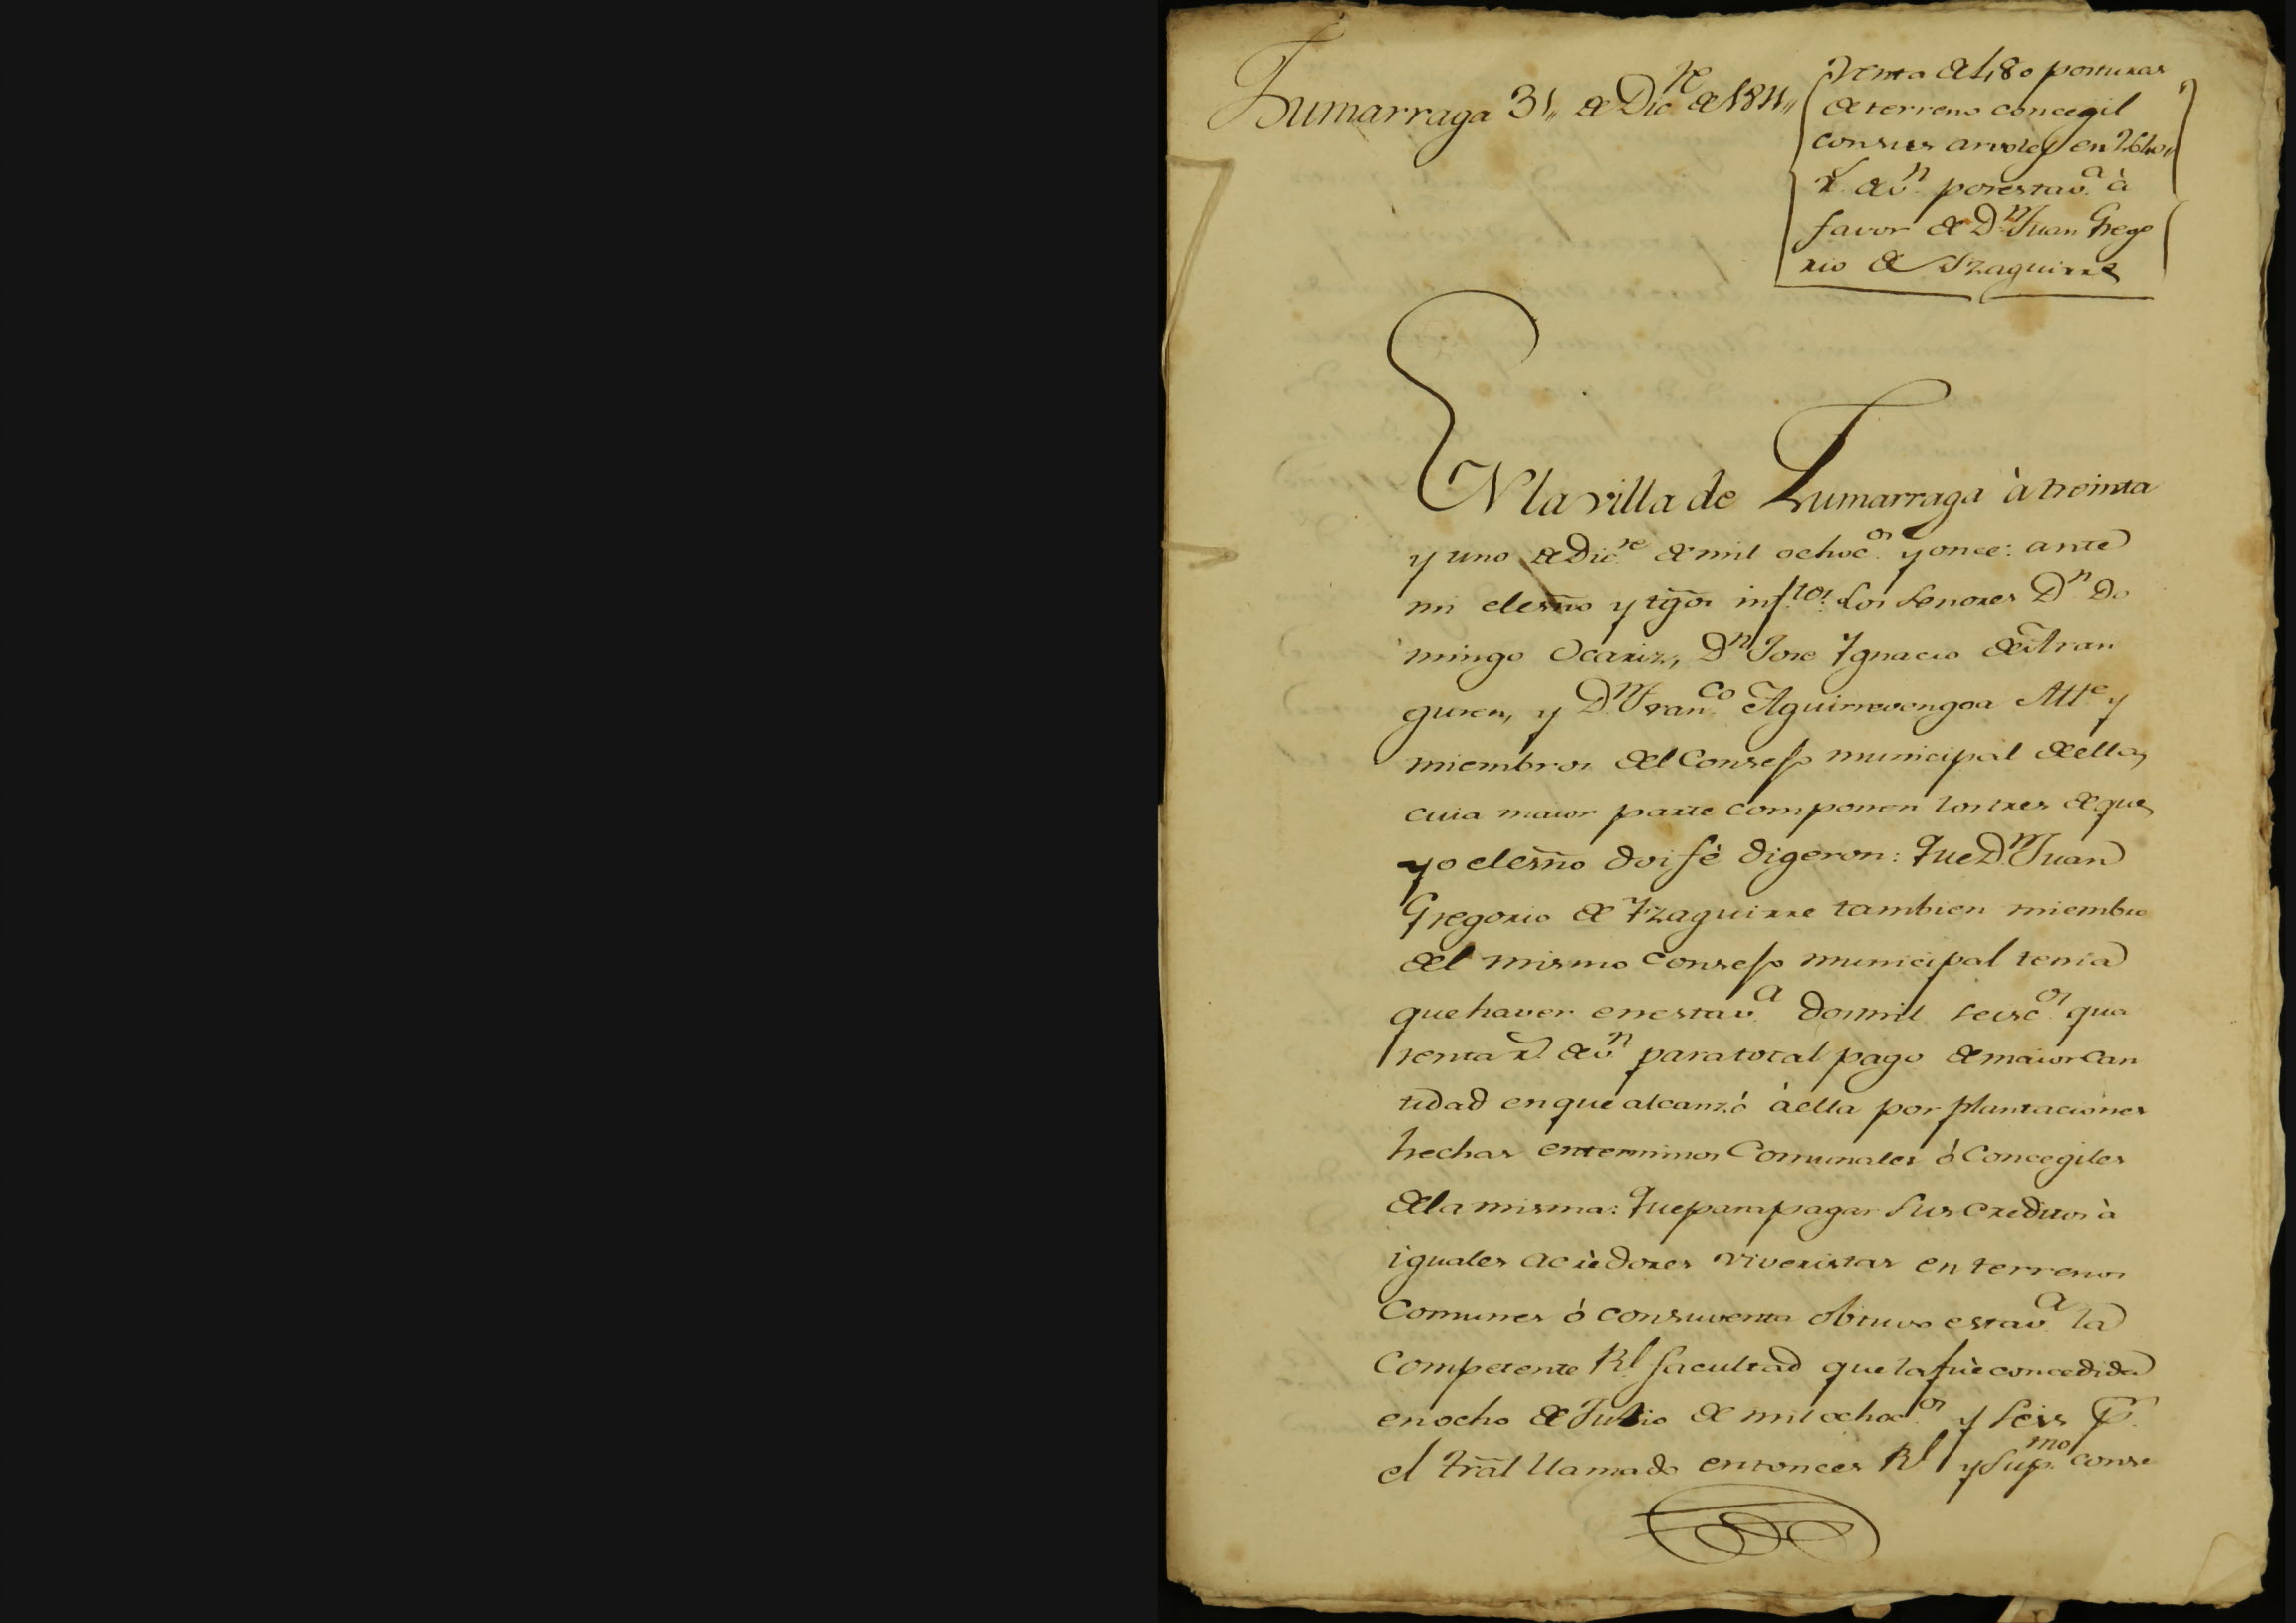 Zumarraga 31,, de Dic.re de 1811,,
Venta de 180 posturas
de terreno concegil
con sus arvoles en 2640,,
r.s de v.n por esta v.a à
favor de D.n Juan Grego
rio de Yzaguirre
EN la villa de Zumarraga à treinta
y uno de Dic.re de mil ochoc.os y once: ante
mi el esñno y tg̃os inf.tos los Senores D.n Do
mingo Ocariz, D.n Jose Ygnacio de Aran
guren, y D.n Fran.co Aguirrevengoa Alt.e y
miembros del Consejo municipal de ella,
cuia maior parte componen los tres de que
yo el esñno doi fè digeron: Que D.n Juan
Gregorio de Yzaguirre tambien miembro
del mismo consejo municipal tenia
que haver en esta v.a dos mil seisc.os qua
renta r.s de v.n para total pago de maior can
tidad en que alcanzó à ella por plantaciones
hechas en terminos Comunales ó Concegiles
de la misma: Que para pagar sus creditos à
iguales acrèdores viveristas en terrenos
Comunes ó con su venta obtuvo esta v.a la
competente R.l facultad que la fuè concedida
en ocho de Julio de mil ochoc.os y seis p.r
el trãl llamado entonces R.l y Sup.mo conse